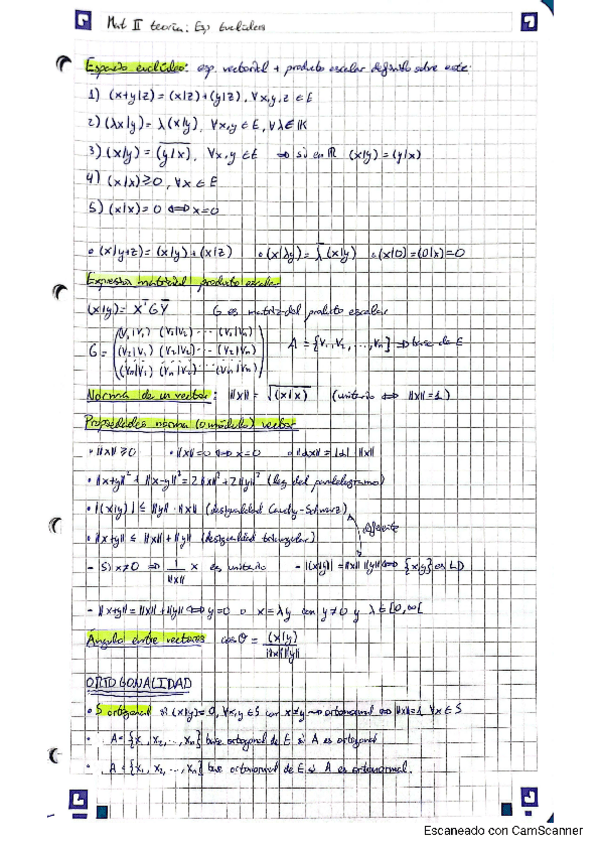 Mat II teoría: Esp Euclídeos
Espacio euclídeo: esp. vectorial + producto escalar definido sobre este.
1) (x+y|z) = (x|z)+(y|z), ∀x,y,z ∈ E
2) (λx|y) = λ(x|y), ∀x,y ∈ E, ∀λ ∈ K
3) (x|y) = \overline{(y|x)}, ∀x,y ∈ E ⇒ si en ℝ (x|y) = (y|x)
4) (x|x) ≥ 0, ∀x ∈ E
5) (x|x) = 0 ⇔ x=0
• (x|y+z) = (x|y)+(x|z) • (x|λy) = \overline{λ}(x|y) • (x|0) = (0|x) = 0
Expresión matricial producto escalar
(x|y) = XᵀGȲ G es matriz del producto escalar
G = ( (V₁|V₁) (V₁|V₂) ... (V₁|Vₙ)
(V₂|V₁) (V₂|V₂) ... (V₂|Vₙ) A = {V₁, V₂, ..., Vₙ} ⇒ base de E
(Vₙ|V₁) (Vₙ|V₂) ... (Vₙ|Vₙ) )
Norma de un vector: ||x|| = √(x|x) (unitario ⇔ ||x||=1)
Propiedades norma (o módulo) vector
• ||x|| ≥ 0 • ||x|| = 0 ⇔ x=0 • ||αx|| = |α| ||x||
• ||x+y||² + ||x-y||² = 2||x||² + 2||y||² (ley del paralelogramo)
• |(x|y)| ≤ ||x|| · ||y|| (desigualdad Cauchy-Schwarz)
• ||x+y|| ≤ ||x|| + ||y|| (desigualdad triangular)
- Si x≠0 ⇒ 1/||x|| x es unitario - |(x|y)| = ||x|| ||y|| ⇔ {x,y} es LD
- ||x+y|| = ||x|| + ||y|| ⇔ y=0 o x=λy con y≠0 y λ ∈ [0,∞[
Ángulo entre vectores cosθ = (x|y) / ||x|| ||y||
ORTOGONALIDAD
• S ortogonal si (x|y)=0, ∀x,y ∈ S con x≠y → ortonormal ⇔ ||x||=1 ∀x ∈ S
• A = {x₁, x₂, ..., xₙ} base ortogonal de E si A es ortogonal
• A = {x₁, x₂, ..., xₙ} base ortonormal de E si A es ortonormal.
Escaneado con CamScanner